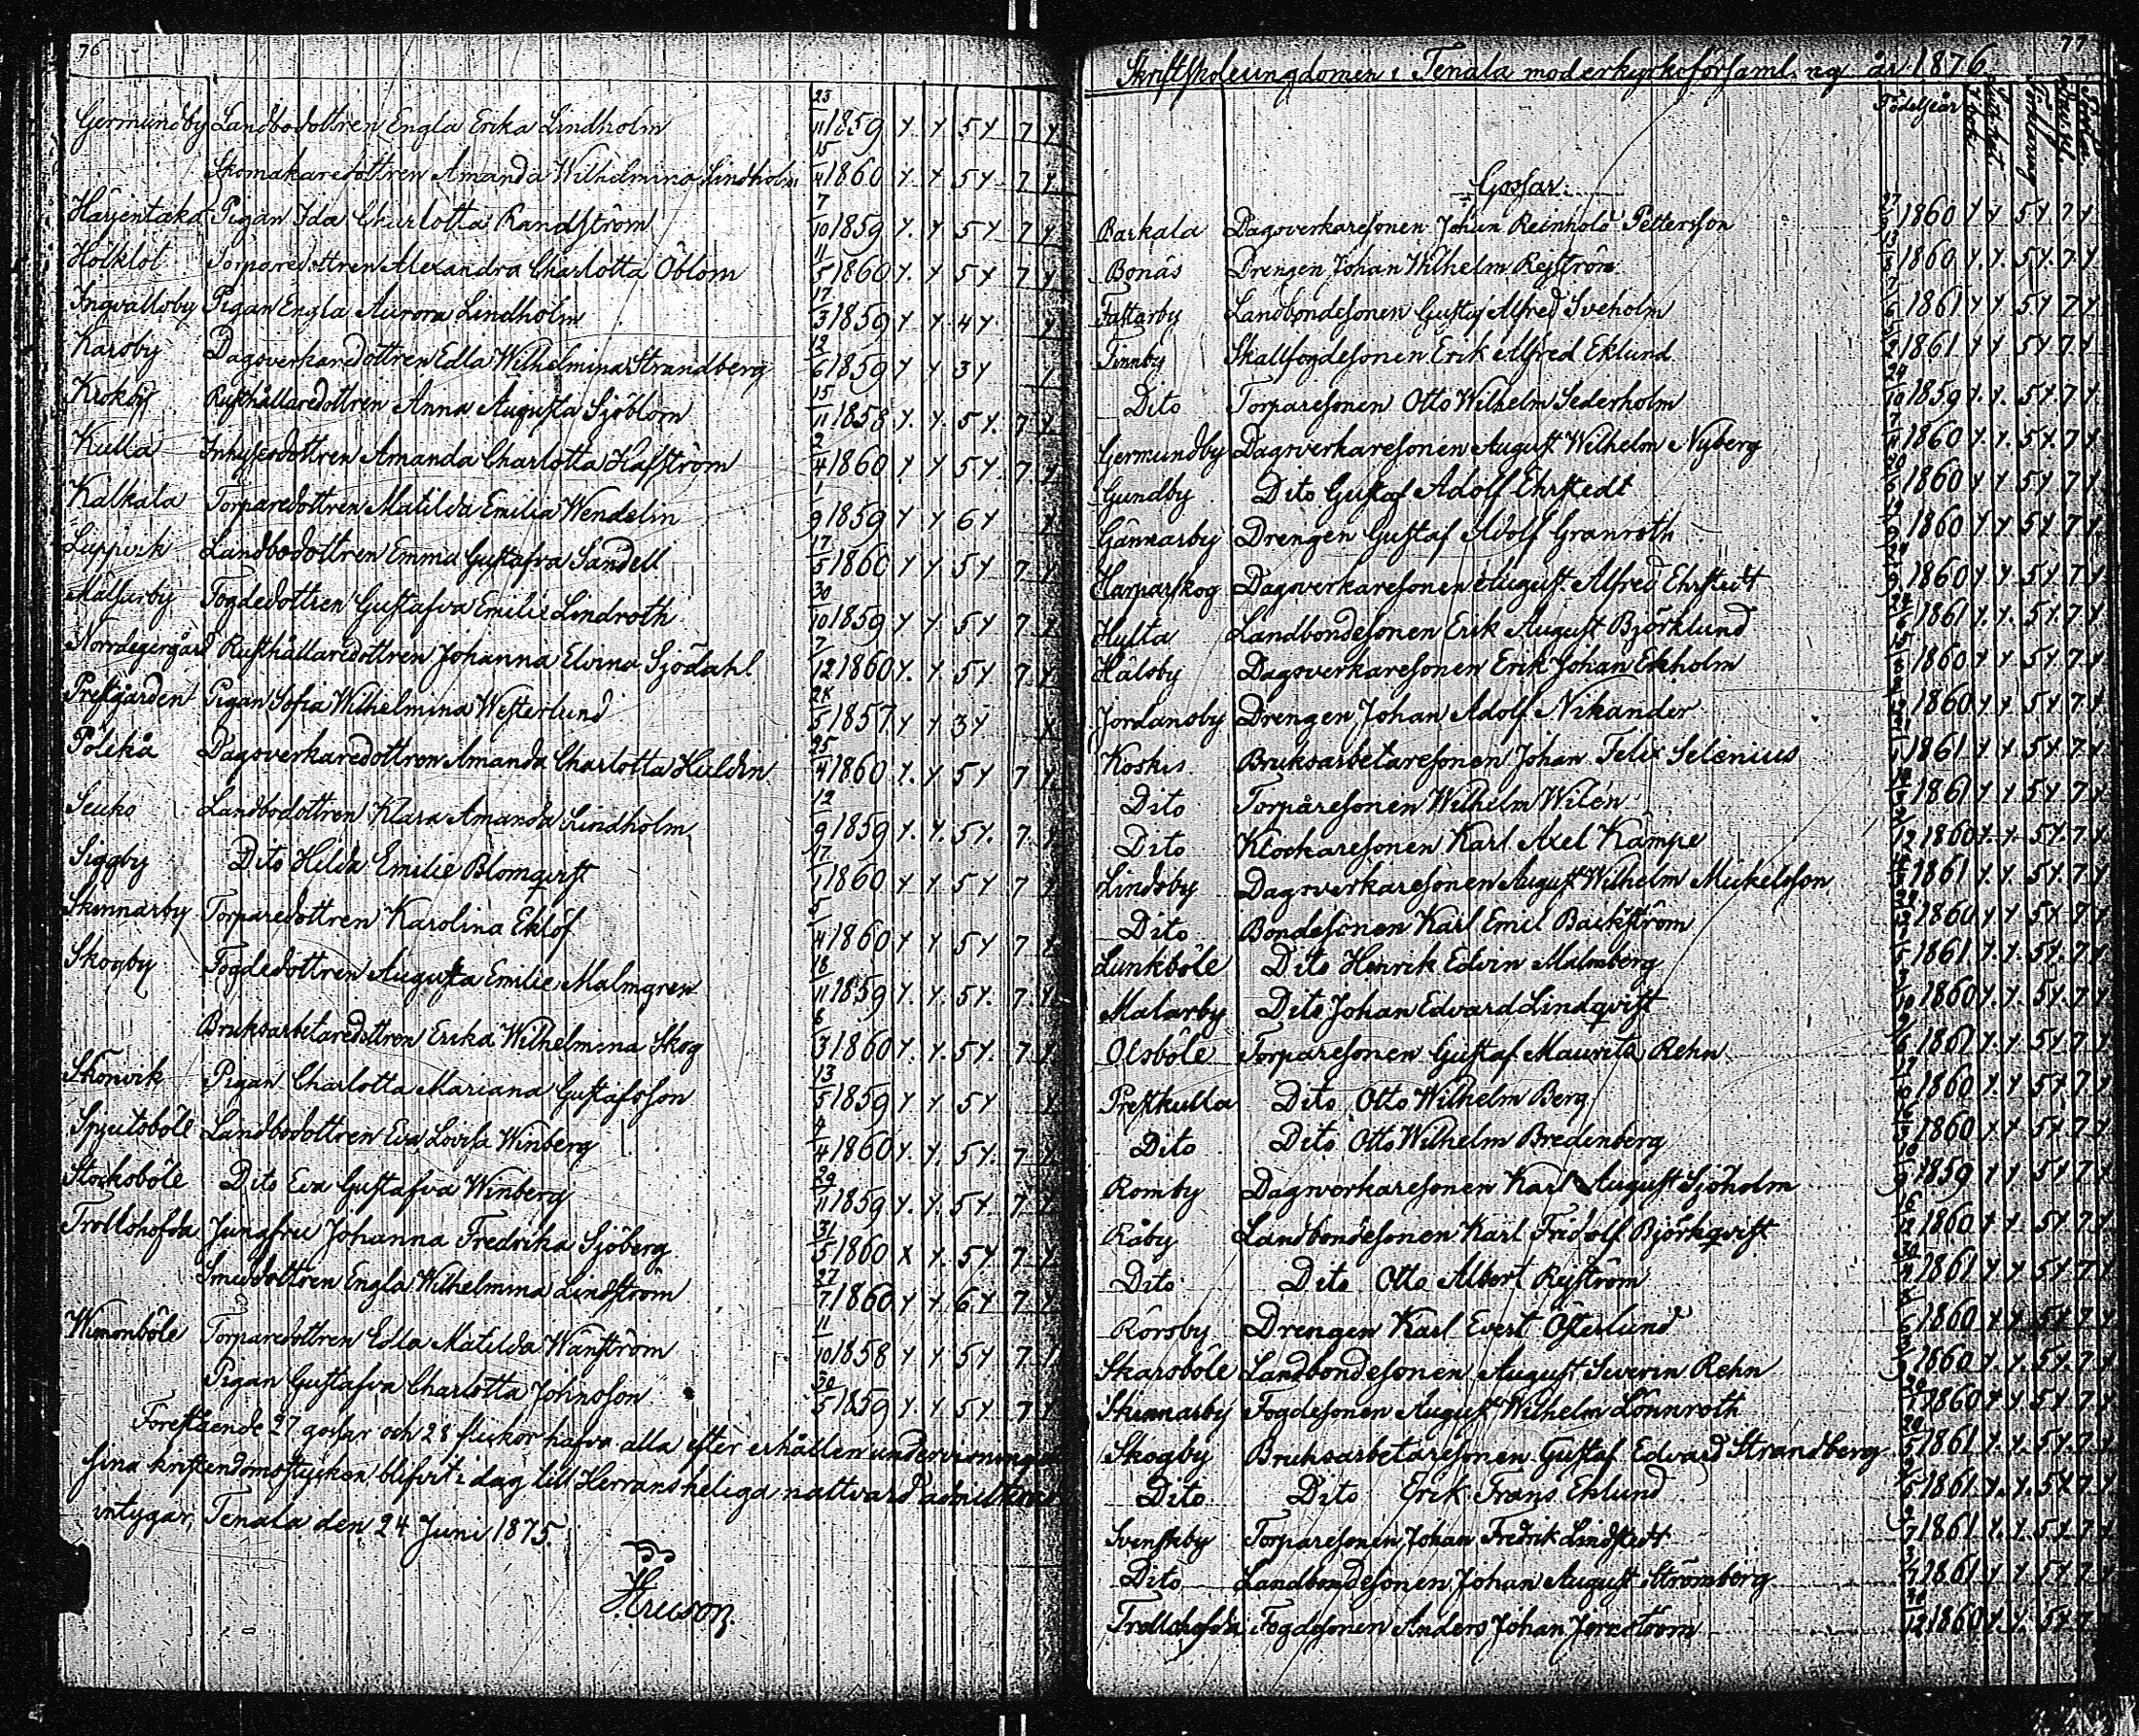 76
Germundby Landbodottren Engla Erika Lindholm 23/11 1859 5 7
Skomakaredottren Amanda Wilhelmina Lindholm 15/4 1860 5 7
Härjentaka Pigan Ida Charlotta Randström 7/10 1859 5 7
Hölklöt Torparedottren Alexandra Charlotta Öblom 11/5 1860 5 7
Ingvallsby Pigan Engla Aurora Lindholm 17/3 1859 4
Karsby Dagsverkaredottren Edla Wilhelmina Strandberg 12/6 1859 3
Krokby Rusthållaredottren Anna Augusta Sjöblom 15/11 1858 5 7
Kulla Inhysesdottren Amanda Charlotta Hafström 2/4 1860 5 7
Kalkala Torparedottren Matilda Emilia Wendelin 1/9 1859 6
Lappvik Landbodottren Emma Gustafva Sandell 17/5 1860 5 7
Malsarby Fogdedottren Gustafva Emilie Lindroth 30/10 1859 5 7
Norrdegergård Rusthållaredottren Johanna Elvina Sjödahl 7/12 1860 5 7
Prestgården Pigan Sofia Wilhelmina Westerlund 28/5 1857 3
Pölekå Dagsverkaredottren Amanda Charlotta Huldin 25/4 1860 5 7
Seuko Landbodottren Klara Amanda Lindholm 12/9 1859 5 7
Siggby Dito Hilda Emilie Blomqvist 17/1 1860 5 7
Skinnarby Torparedottren Karolina Eklöf 5/4 1860 5 7
Skogby Fogdedottren Augusta Emilie Malmgren 18/11 1859 5 7
Bruksarbetaredottren Erika Wilhelmina Skog 6/3 1860 5 7
Skönvik Pigan Charlotta Mariana Gustafsson 13/5 1859 5
Spjutsböle Landbodottren Eva Lovisa Winberg 4/4 1860 5 7
Storksböle Dito Eva Gustafva Winberg 29/11 1859 5 7
Trollshofda Jungfru Johanna Fredrika Sjöberg 31/5 1860 5 7
Smeddottren Engla Wilhelmina Lindström 27/7 1860 6 7
Wimonböle Torparedottren Edla Matilda Wänström 11/10 1858 5 7
Pigan Gustafva Charlotta Johnsson 30/5 1859 5 7
Forestående 27 gossar och 28 flickor hafva alla efter erhållen undervisning
sina kristendomsstycken blifvit i dag till Herrans heliga nattvard
intygar, Tenala den 24 Juni 1875.
77
Skriftskoleungdomen i Tenala moderkyrkoförsamling år 1876
Födelseår
Gossar.
Barkala Dagsverkaresonen Johan Reinhold Pettersson 1860 5 7
Bonäs Drengen Johan Wilhelm Rejström 1860 5 7
Fastarby Landbondesonen Gustaf Alfred Sveholm 1861 5 7
Finnby Skallfogdesonen Erik Alfred Eklund 1861 5 7
Dito Torparesonen Otto Wilhelm Sederholm 24/10 1859 5 7
Germundby Dagsverkaresonen August Wilhelm Nyberg 1860 5 7
Gundby Dito Gustaf Adolf Ehrstedt 1860 5 7
Gännarby Drengen Gustaf Adolf Granroth 1860 5 7
Harparskog Dagsverkaresonen August Alfred Ehrstedt 1860 5 7
Hulta Landbondesonen Erik August Björklund 1861 5 7
Hålsby Dagsverkaresonen Erik Johan Ekholm 1860 5 7
Jordansby Drengen Johan Adolf Nikander 1860 5 7
Koskis Bruksarbetaresonen Johan Felix Selenius 1861 5 7
Dito Torparesonen Wilhelm Wilén 1861 5 7
Dito Klockaresonen Karl Axel Kämpe 1860 5 7
Lindsby Dagsverkaresonen August Wilhelm Mickelsson 1861 5 7
Dito Bondesonen Karl Emil Backström 1860 5 7
Lunkböle Dito Henrik Edvin Malmberg 1861 5 7
Malarby Dito Johan Edvard Lindqvist 1860 5 7
Olsböle Torparesonen Gustaf Mauritz Rehn 1861 5 7
Prestkulla Dito Otto Wilhelm Berg 1860 5 7
Dito Dito Otto Wilhelm Bredenberg 1860 5 7
Romby Dagsverkaresonen Karl August Sjöholm 1859 5 7
Råby Landbondesonen Karl Fridolf Björkqvist 1860 5 7
Dito Dito Otto Albert Rejström 1861 5 7
Rörsby Drengen Karl Evert Österlund 1860 5 7
Skarsböle Landbondesonen August Severin Rehn 1860 5 7
Skinnarby Fogdesonen August Wilhelm Lönnroth 1860 5 7
Skogby Bruksarbetaresonen Gustaf Edvard Strandberg 1861 5 7
Dito Dito Erik Frans Eklund 1861 5 7
Svenskby Torparesonen Johan Fredrik Lindstedt 1861 5 7
Dito Landbondesonen Johan August Strömberg 1861 5 7
Trollshofda Fogdesonen Anders Johan Jernström 1860 5 7